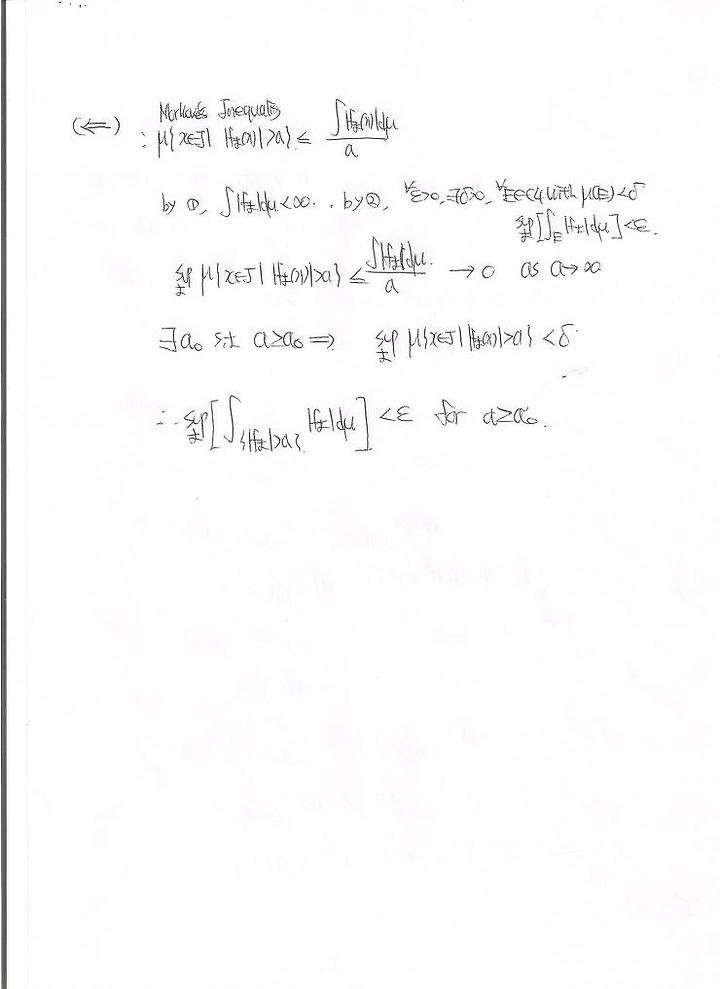 (⇐) Markov's Inequality
: μ{x∈J | |f_I(x)|>a} ≤ ∫|f_I(x)|dμ / a
by ①, ∫|f_I|dμ<∞. . by ②, ∀ε>0, ∃δ>0, ∀E∈𝒰 with μ(E)<δ
sup_I [∫_E |f_I|dμ] <ε.
sup_I μ{x∈J | |f_I(x)|>a} ≤ ∫|f_I|dμ. / a → 0 as a→∞
∃a₀ s.t a≥a₀ ⇒ sup_I μ{x∈J | |f_I(x)|>a} <δ
∴ sup_I [∫_{|f_I|>a} |f_I|dμ] <ε for a≥a₀.